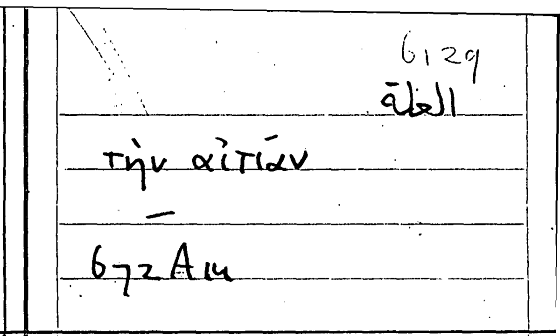 6,29
العلة
τὴν αἰτίαν
—
672 A 14